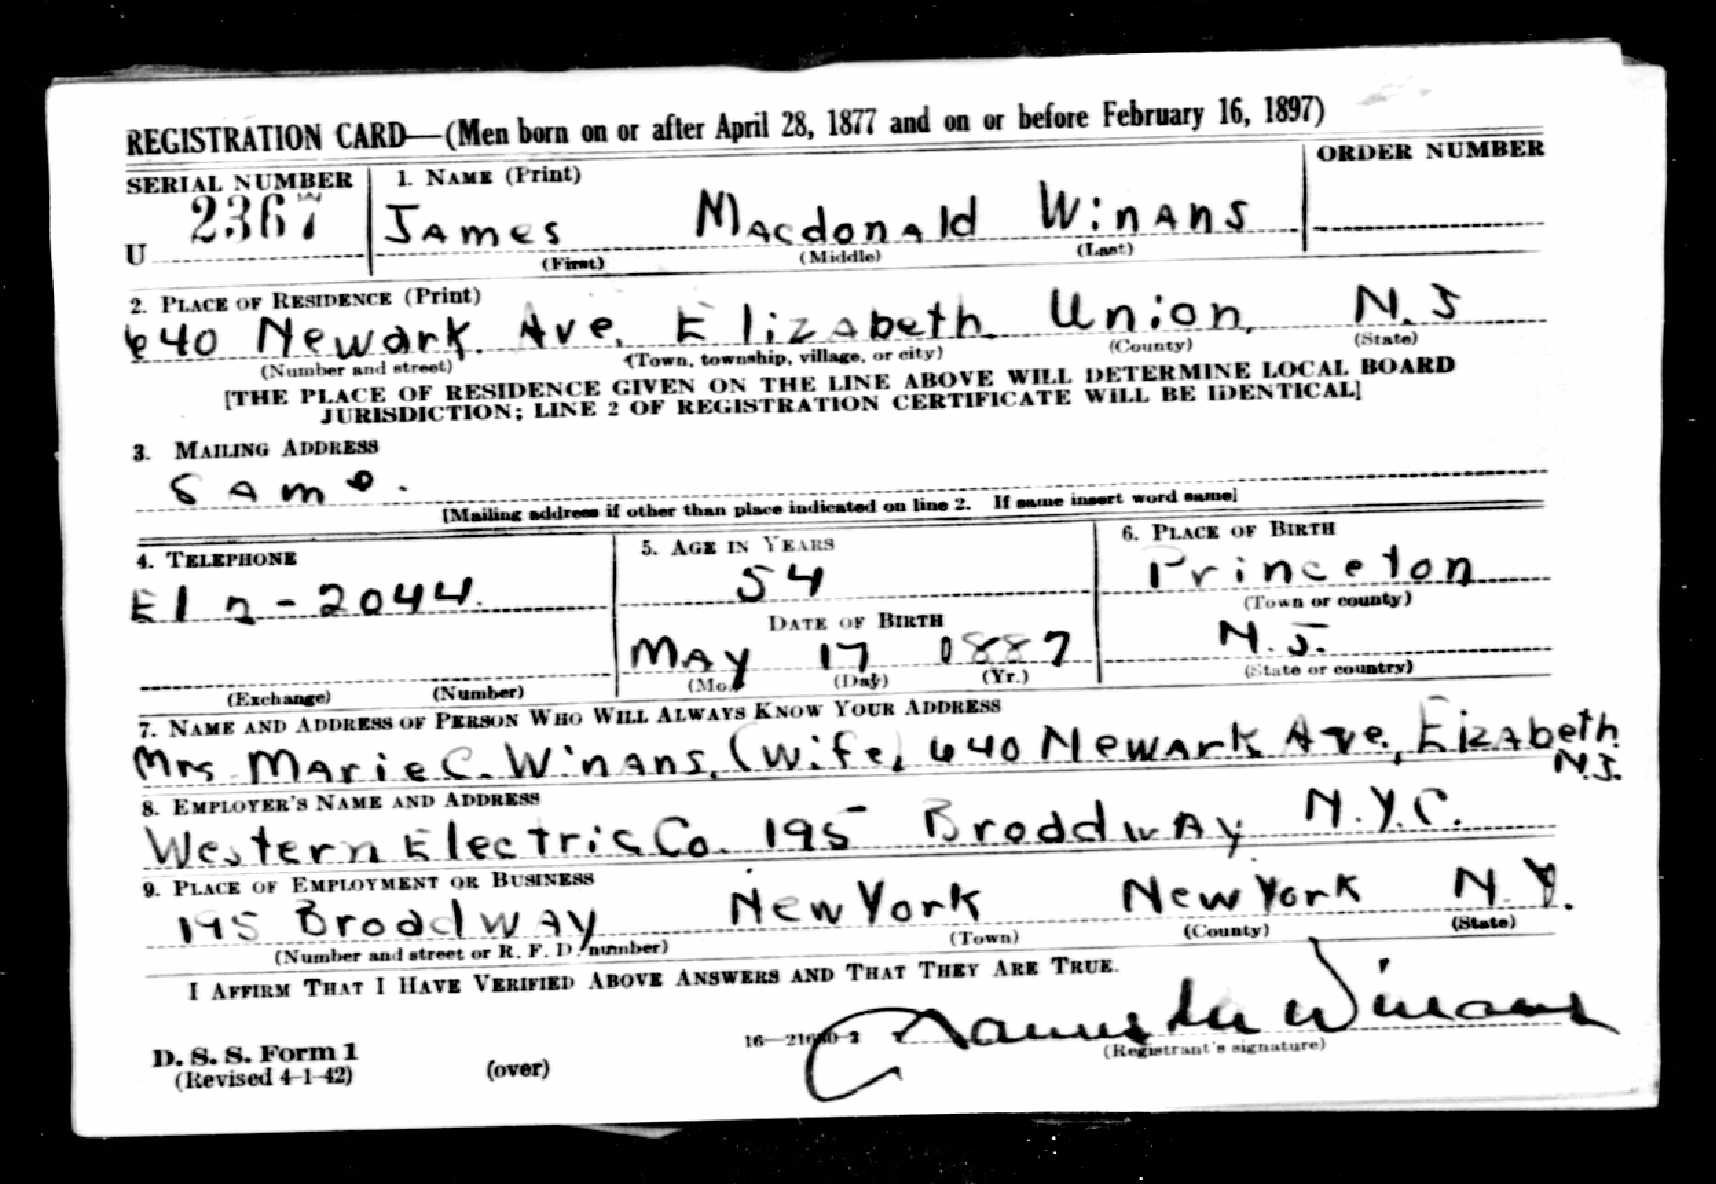 REGISTRATION CARD—(Men born on or after April 28, 1877 and on or before February 16, 1897)
SERIAL NUMBER 1. NAME (Print) ORDER NUMBER
U 2367 James Macdonald Winans
(First) (Middle) (Last)
2. PLACE OF RESIDENCE (Print)
640 Newark Ave. Elizabeth Union, N.J
(Number and street) (Town, township, village, or city) (County) (State)
[THE PLACE OF RESIDENCE GIVEN ON THE LINE ABOVE WILL DETERMINE LOCAL BOARD
JURISDICTION; LINE 2 OF REGISTRATION CERTIFICATE WILL BE IDENTICAL]
3. MAILING ADDRESS
Same.
[Mailing address if other than place indicated on line 2. If same insert word same]
4. TELEPHONE 5. AGE IN YEARS 6. PLACE OF BIRTH
El 2-2044. 54 Princeton
(Town or county)
DATE OF BIRTH
May 17 1887 N.J.
(Exchange) (Number) (Mo.) (Day) (Yr.) (State or country)
7. NAME AND ADDRESS OF PERSON WHO WILL ALWAYS KNOW YOUR ADDRESS
Mrs Marie C. Winans, (Wife) 640 Newark Ave., Elzabeth
N.J.
8. EMPLOYER'S NAME AND ADDRESS
Western Electric Co. 195 Broadway N.Y.C.
9. PLACE OF EMPLOYMENT OR BUSINESS
195 Broadway New York New York N.Y.
(Number and street or R. F. D. number) (Town) (County) (State)
I AFFIRM THAT I HAVE VERIFIED ABOVE ANSWERS AND THAT THEY ARE TRUE.
D. S. S. Form 1
(Revised 4-1-42) (over) James Winans
(Registrant's signature)